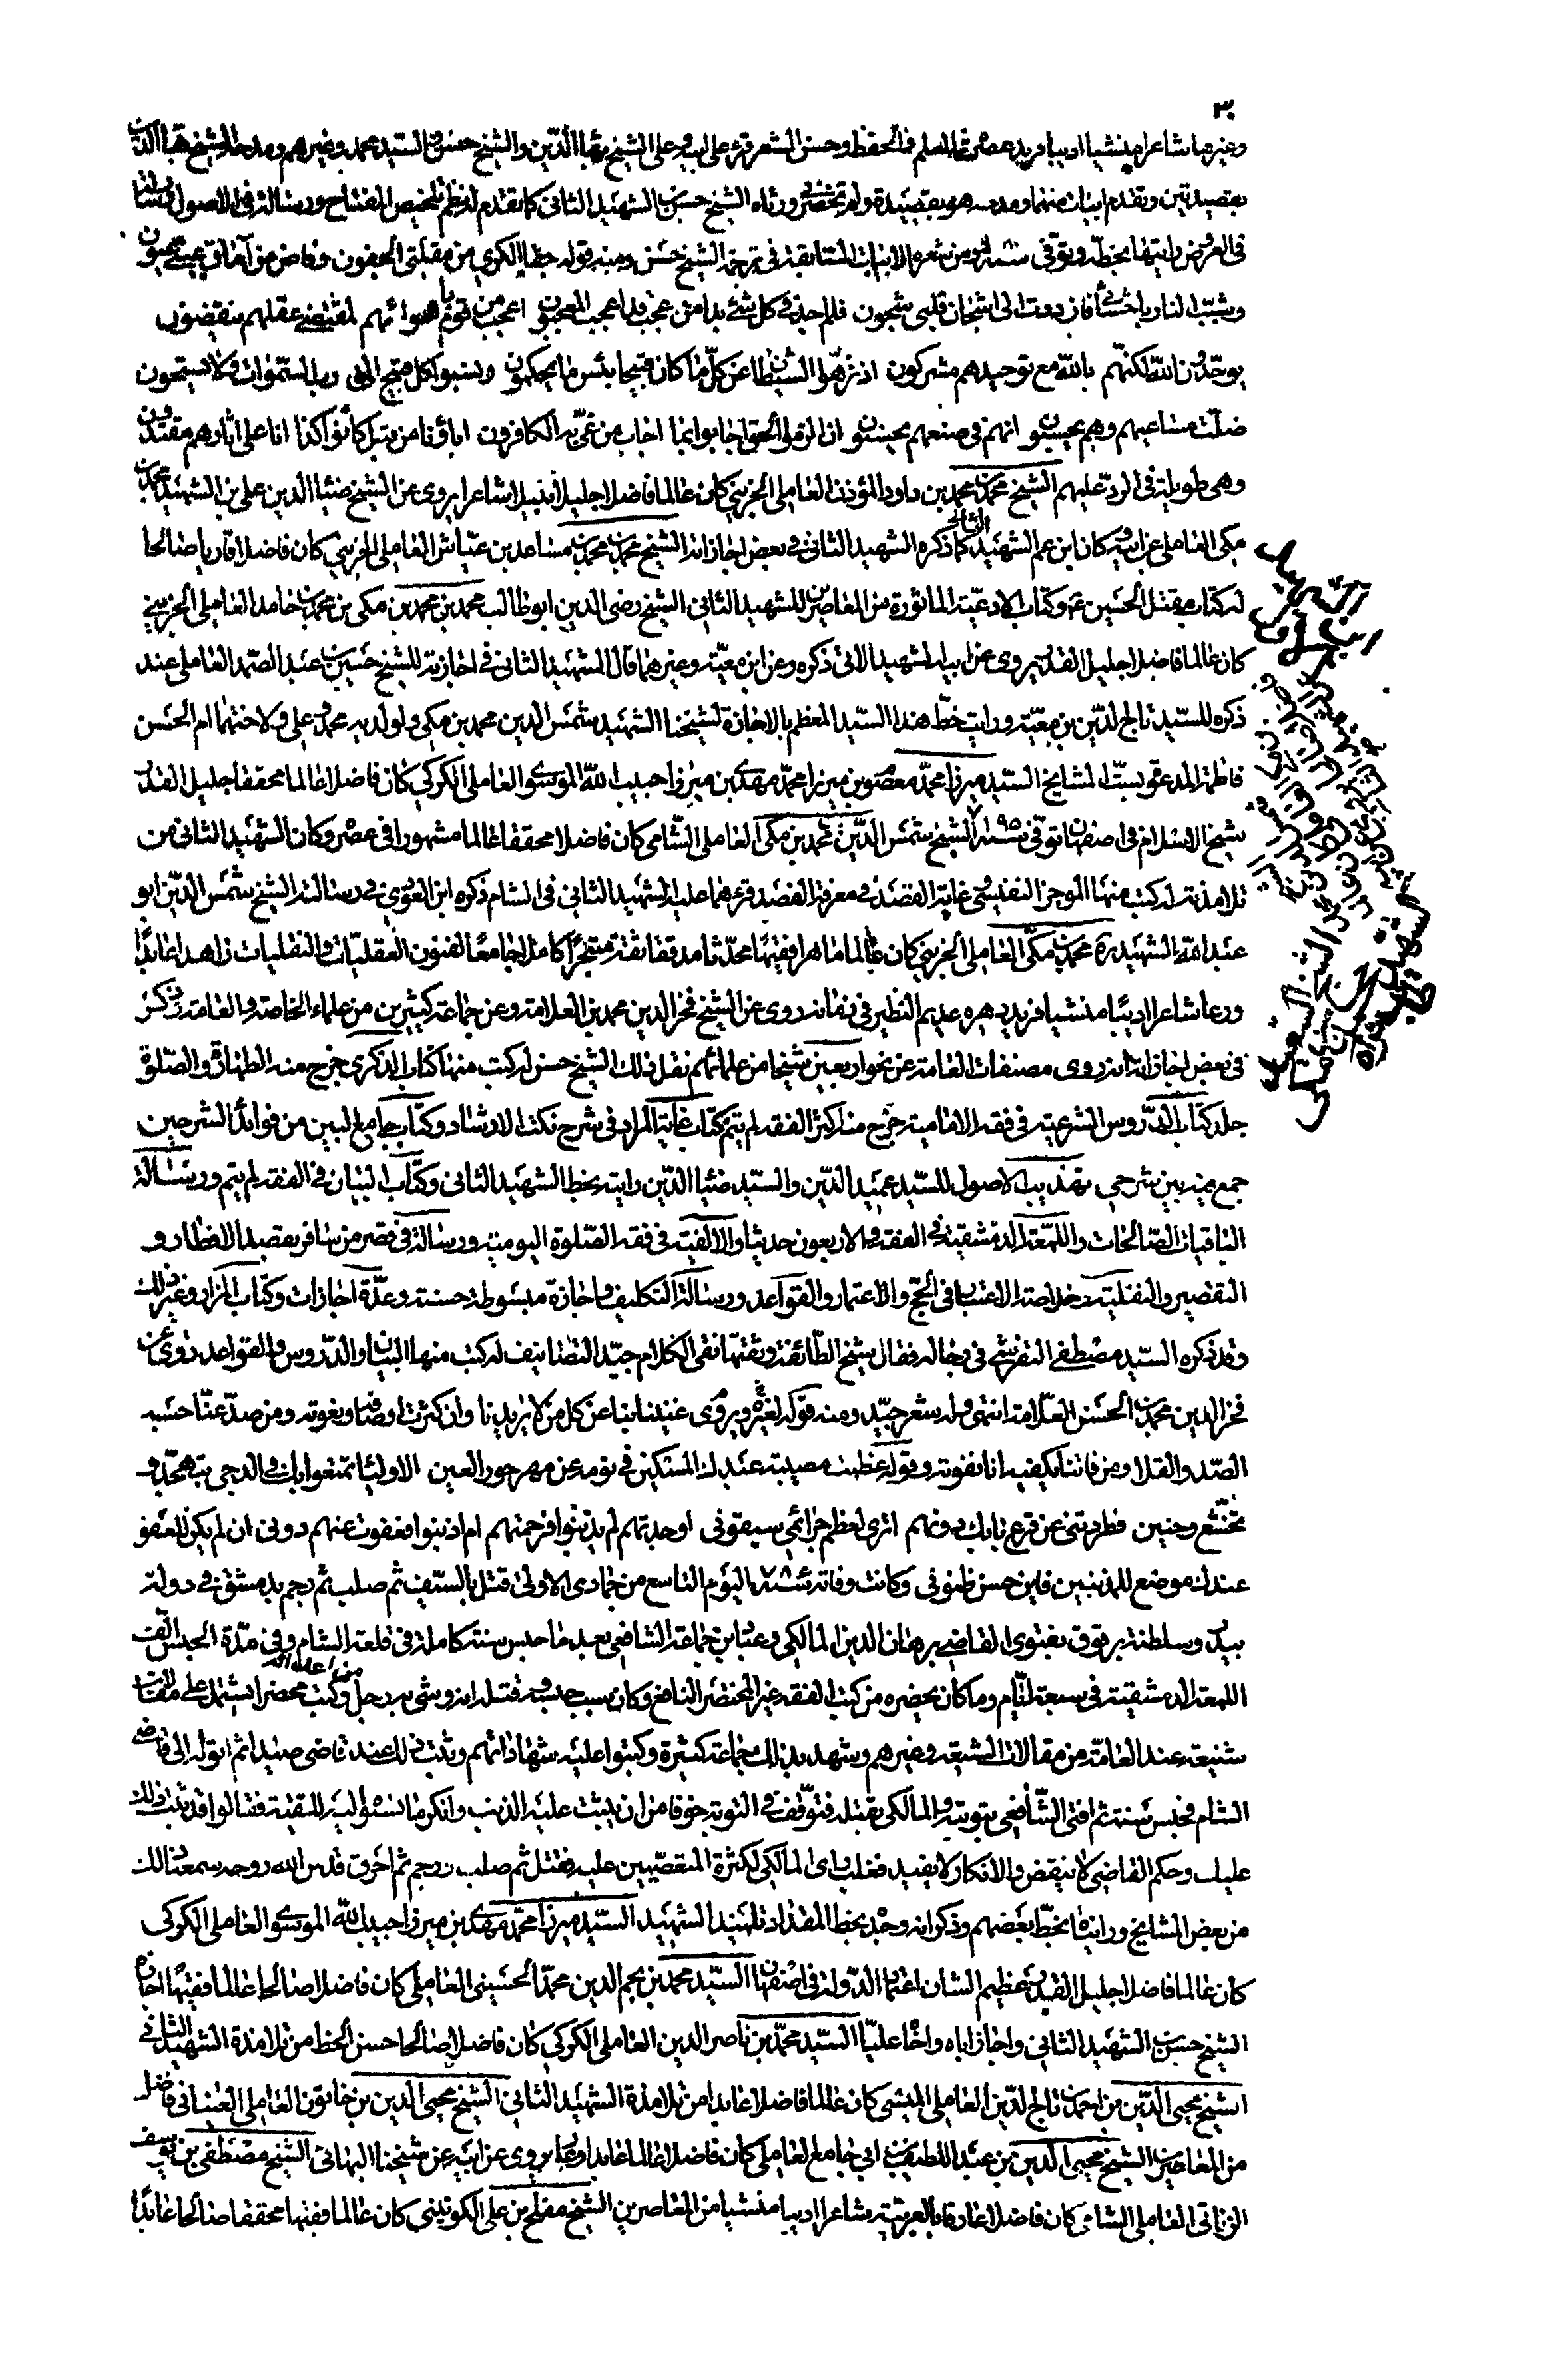 ٣٠
وغيرها شاعرا منشيا اديبا فريد عصره في العلم والحفظ وحسن الشعر قرء على ابيه وعلى الشيخ بهاء الدين والشيخ حسن والسيد محمد وغيرهم ومدحه الشيخ بهاء الدين
بقصيدتين وتقدم ابيات منهما ومدحه هو بقصيدة ولم تحضرني ورثاه الشيخ حسن بن الشهيد الثاني كما تقدم له نظم تلخيص المفتاح ورسالة في الاصول
في العروض رايتها بخطه وتوفي سنة ومن شعره الابيات السابقة في ترجمة الشيخ حسن ومنه قوله الكرى من مقلتي الجفون وفاض من آماق عيني عيون
وشبت النار باحشائي فازدادت الى اشجان قلبي شجون فلم احد في كل شيء بدا من عجب بدا اعجب المعجبون اعجب من قوم باهوائهم لمقتضى عقلهم ينقضون
يوحدون الله لكنهم بالله مع توحيدهم مشركون اذ نزهوا الشيطان عن كل ما كان قبيحا بئس ما يحكمون ونسبوا كل قبيح الى رب السموات ولا يستحيون
ضلت مساعيهم وهم يحسبون انهم في صنعهم يحسنون ان الزموا الحق اجابوا بما اجاب من غيه الكافرون اباؤنا من قبل كانوا كذا انا على اثارهم مقتدون
وهي طويلة في الرد عليهم الشيخ محمد بن محمد بن داود المؤذن العاملي الجزيني كان عالما فاضلا جليلا نبيلا شاعرا يروي عن الشيخ ضياء الدين علي بن الشهيد محمد بن
مكي العاملي عن ابيه وكان ابن عم الشهيد كما ذكره الشهيد الثاني في بعض اجازاته الشيخ محمد بن محمد بن مساعد بن عياش العاملي الجزيني كان فاضلا قاريا صالحا
له كتاب مقتل الحسين ع وكتاب الادعية الماثورة من المعاصرين للشهيد الثاني الشيخ رضي الدين ابو طالب محمد بن محمد بن مكي بن محمد بن حامد العاملي الجزيني
كان عالما فاضلا جليل القدر يروي عن ابيه الشهيد الآتي ذكره وعن ابن معية وغيرهما قال الشهيد الثاني في اجازته للشيخ حسين بن عبد الصمد العاملي عند
ذكره للسيد تاج الدين بن معية ورايت خط هذا السيد المعظم بالاجازة لشيخنا الشهيد شمس الدين محمد بن مكي ولولديه محمد وعلي ولاختهما ام الحسن
فاطمة المدعوة بست المشايخ السيد ميرزا محمد معصوم بن ميرزا محمد مهدي بن ميرزا حبيب الله الموسوي العاملي الكركي كان فاضلا عالما محققا جليل القدر
شيخ الاسلام في اصفهان توفي سنة ١٠٩٥ الشيخ شمس الدين محمد بن مكي العاملي الشامي كان فاضلا محققا عالما مشهورا في عصره وكان الشهيد الثاني من
تلامذته له كتب منها الموجز النفيسي وغاية القصد في معرفة الفصد قرءهما عليه الشهيد الثاني في الشام ذكره ابن العودي في رسالته الشيخ شمس الدين ابو
عبد الله الشهيد ره محمد بن مكي العاملي الجزيني كان عالما ماهرا فقيها محدثا مدققا ثقة متبحرا كاملا جامعا لفنون العقليات والنقليات زاهدا عابدا
ورعا شاعرا اديبا منشيا فريد دهره عديم النظير في زمانه روى عن الشيخ فخر الدين محمد بن العلامة وعن جماعة كثيرين من علماء الخاصة والعامة وذكر
في بعض اجازاته انه روى مصنفات العامة عن نحو اربعين شيخا من علمائهم نقل ذلك الشيخ حسن له كتب منها كتاب الذكرى خرج منه الطهارة والصلوة
جلد كتاب الدروس الشرعية في فقه الامامية خرج منه اكثر الفقه لم يتم كتاب غاية المراد في شرح نكت الارشاد وكتاب جامع البين من فوائد الشرحين
جمع فيه بين شرحي تهذيب الاصول للسيد عميد الدين والسيد ضياء الدين رايته بخط الشهيد الثاني وكتاب البيان في الفقه لم يتم ورسالة
الباقيات الصالحات واللمعة الدمشقية في الفقه والاربعون حديثا والالفية في فقه الصلوة اليومية ورسالة في قصر من سافر بقصد الافطار و
التقصير والنفلية وخلاصة الاعتبار في الحج والاعتمار والقواعد ورسالة التكليف واجازة مبسوطة حسنة وعدة اجازات وكتاب المزار وغير ذلك
وقد ذكره السيد مصطفى التفرشي في رجاله فقال شيخ الطائفة وثقتها نقي الكلام جيد التصانيف له كتب منها البيان والدروس والقواعد روى عن
فخر الدين محمد بن الحسن العلامة انتهى وله شعر جيد ومنه قوله ويروى لغيره غنينا بنا عن كل من لا يريدنا وان كثرت اوصافه ونعوته ومن صد عنا حسبه
الصد والقلا ومن فاتنا يكفيه انا نفوته وقوله عظمت مصيبة عبدك المسكين في نومه عن مهر حور العين الاولياء تمتعوا بك في الدجى بتهجد و
تخشع وحنين فطردتني عن قرع بابك دونهم اترى لعظم جرائمي سبقوني اوجدتهم لم يذنبوا فرحمتهم ام اذنبوا فعفوت عنهم دوني ان لم يكن للعفو
عندك موضع للمذنبين فاين حسن ظنوني وكانت وفاته سنة ٧٨٦ اليوم التاسع من جمادى الاولى قتل بالسيف ثم صلب ثم رجم بدمشق في دولة
بيدر وسلطنة برقوق بفتوى القاضي برهان الدين المالكي وعباد بن جماعة الشافعي بعد ما حبس سنة كاملة في قلعة الشام وفي مدة الحبس الف
اللمعة الدمشقية في سبعة ايام وما كان يحضره من كتب الفقه غير المختصر النافع وكان سبب حبسه وقتله انه وشى به رجل من اعدائه وكتب محضرا يشتمل على مقالات
شنيعة عند العامة من مقالات الشيعة وغيرهم وشهد بذلك جماعة كثيرة وكتبوا عليه شهاداتهم وثبت ذلك عند قاضي صيدا ثم اتوا به الى قاضي
الشام فحبس سنة ثم افتى الشافعي بتوبته والمالكي بقتله فتوقف في التوبة خوفا من ان يثبت عليه الذنب وانكر ما نسبوه اليه للتقية فقالوا قد ثبت ذلك
عليك وحكم القاضي لا ينقض والانكار لا يفيد فغلب راى المالكي لكثرة المتعصبين عليه فقتل ثم صلب ورجم ثم احرق قدس الله روحه سمعنا ذلك
من بعض المشايخ وراينا بخط بعضهم وذكر انه وجد بخط المقداد تلميذ الشهيد السيد ميرزا محمد مهدي بن ميرزا حبيب الله الموسوي العاملي الكركي
كان عالما فاضلا جليل القدر عظيم الشان اعتماد الدولة في اصفهان السيد محمد بن نجم الدين محمد الحسيني العاملي كان فاضلا صالحا عالما فقيها اجازه
الشيخ حسن بن الشهيد الثاني واجاز اباه واخاه عليا السيد محمد بن ناصر الدين العاملي الكركي كان فاضلا صالحا حسن الخط من تلامذة الشهيد الثاني
الشيخ محيي الدين بن احمد بن تاج الدين العاملي الميسي كان عالما فاضلا عابدا من تلامذة الشهيد الثاني الشيخ محيي الدين بن خاتون العاملي العيناثي فاضل
من المعاصرين الشيخ محيي الدين بن عبد اللطيف بن ابي جامع العاملي كان فاضلا عالما عابدا ورعا يروي عن ابيه عن شيخنا البهائي الشيخ مصطفى بن يوسف
الزناتي العاملي الشامي كان فاضلا عارفا بالعربية شاعرا اديبا منشيا من المعاصرين الشيخ مفلح بن علي الكونيني كان عالما فقيها محققا صالحا عابدا